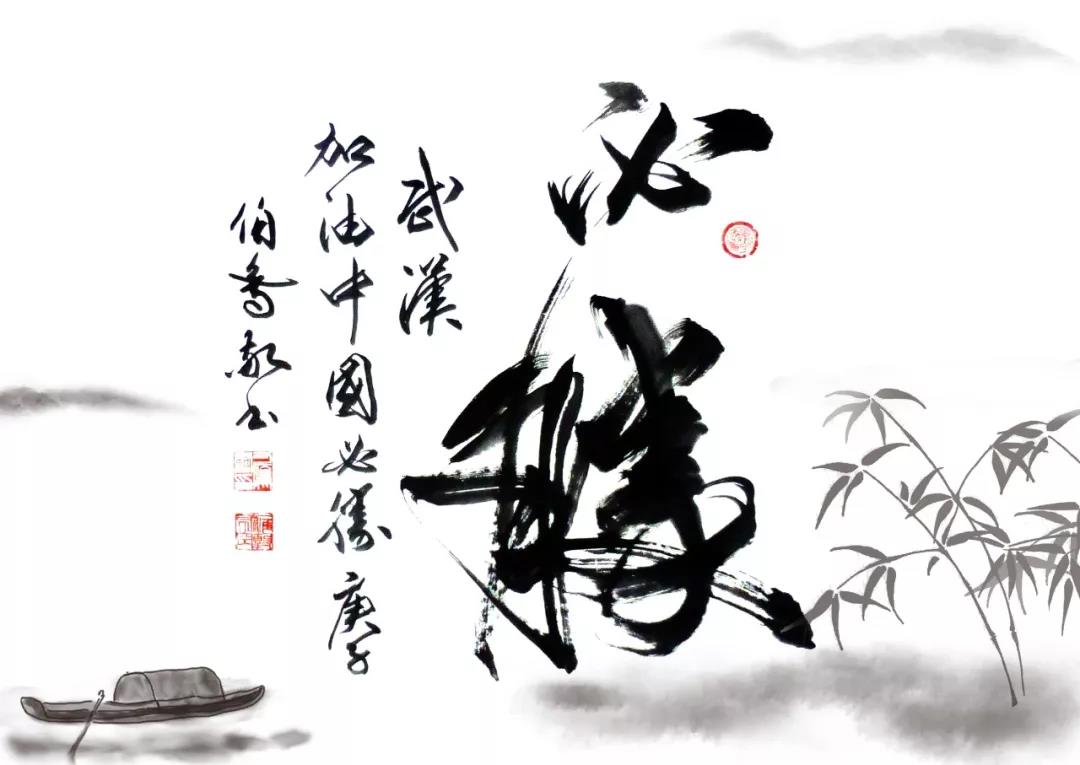 必勝
武漢
加油中國必勝庚子
伯喬敬書